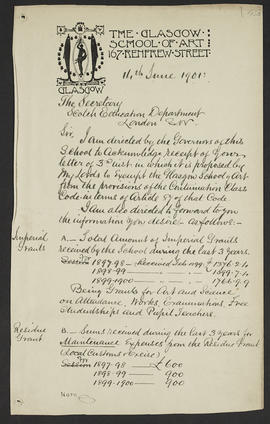 THE GLASGOW
SCHOOL OF ART
167 RENFREW STREET
GLASGOW
14th June 1901
The Secretary
Scotch Education Department
London S.W
Sir,
I am directed by the Governors of this
School to acknowledge receipt of your
letter of 3rd inst. in which it is proposed by
My Lords to exempt the Glasgow School of Art
from the provisions of the Continuation Class
Code in terms of Article 87 of that Code
I am also directed to forward to you
the information you desire as follows:—
Imperial Grants
A.— Total Amount of Imperial Grants
received by the School during the last 3 years.
Session 1897-98 — Received
1898-99
1899-1900
Being Grants for Art and Science
on Attendance, Works, Examinations, Free
Studentships and Pupil Teachers.
Residue Grant
B.— Sums received during the last 3 years for
Maintenance Expenses from the Residue Grant
(Local Customs & Excise)
Session 1897-98 — £600
1898-99 — 900
1899-1900 — 900
Note